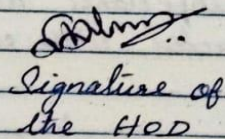 Signature of
the HOD